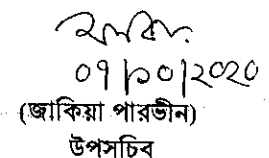 ০৭/১০/২০২০
(জাকিয়া পারভীন)
উপসচিব